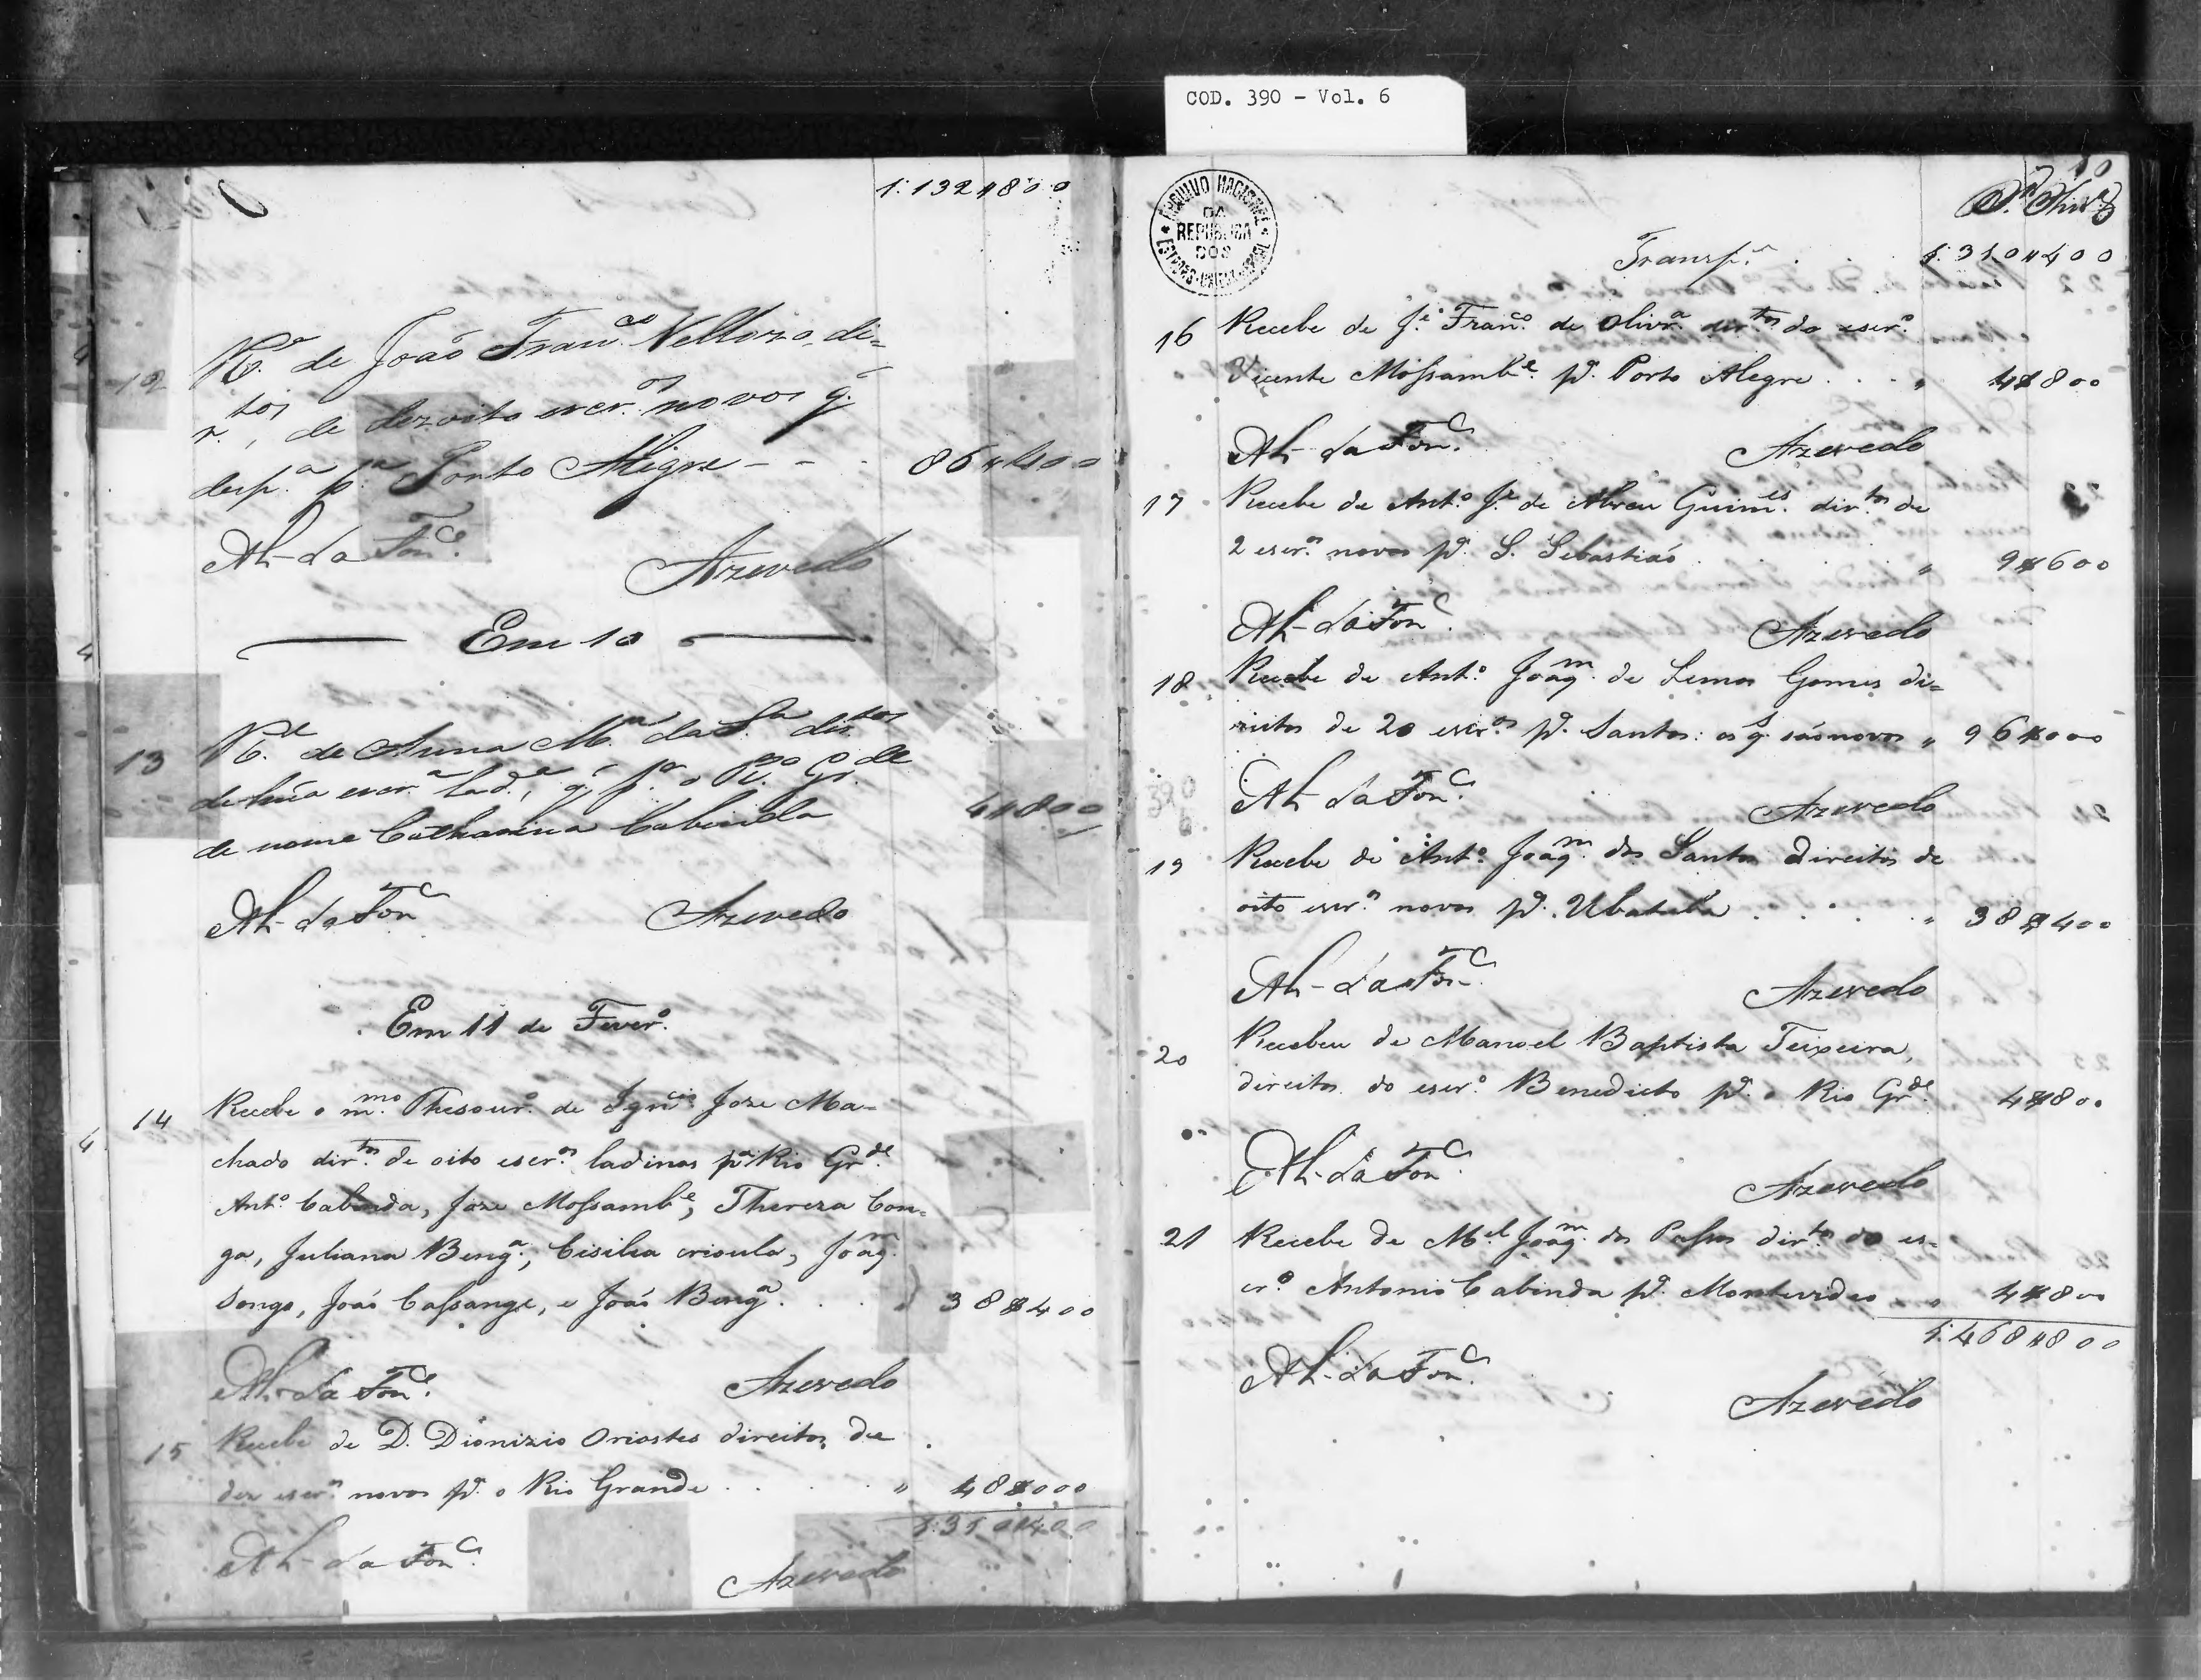 COD. 390 - Vol. 6
1:132$800
12 R.º de João Fran.co Vellozo, di=
r.tos, de dezoito escr.os novos q.
desp.a p.a Porto Alegre - - - 86$400
Ah-da Fon.ca
Azevedo
Em 10
13 R.e de Anna M.a da S.a dir.tos
de hũa escr.a lad.a, q' p.a o R.o Gr.de
de nome Catharina Cabinda 4$800
Ah-da Fon.ca Azevedo
Em 11 de Fever.o
14 Recebe o m.mo Thesour.o de Ign.cio Joze Ma-
chado dir.tos de oito escr.os ladinos p.a Rio Gr.de
Ant.o Cabinda, Joze Mossamb.e, Thereza Con-
go, Juliana Beng.a, Cisilia crioula, Joaq.m
Songo, João Cassange, e João Beng.a . . . 38$400
Ah-da Fon.ca Azevedo
15 Recebe de D. Dionizio Oriostes direitos de
dez escr.os novos p.a o Rio Grande . . . . " 48$000
1:310$400
Ah-da Fon.ca Azevedo
ARQUIVO NACIONAL DA REPUBLICA DOS ESTADOS UNIDOS
10
Transp.e . . . 1:310$400
16 Recebe de J.e Fran.co de Olivr.a dir.tos do escr.o
Vicente Mossamb.e p.a Porto Alegre . . . " 4$800
Ah-da Fon.ca Azevedo
17 Recebe de Ant.o J.e de Abreu Guim.es dir.tos de
2 escr.os novos p.a S. Sebastião . . . " 9$600
Ah-da Fon.ca Azevedo
18 Recebe de Ant.o Joaq.m de Lemos Gomes di=
reitos de 20 escr.os p.a Santos: os q.s são novos " 96$000
Ah-da Fon.ca Azevedo
390
6
19 Recebe de Ant.o Joaq.m dos Santos direitos de
oito escr.os novos p.a Ubatuba . . . . " 38$400
Ah-da Fon.ca Azevedo
20 Recebeu de Manoel Baptista Teixeira,
direitos do escr.o Benedicto p.a o Rio Gr.de 4$800
Ah-da Fon.ca Azevedo
21 Recebe de M.el Joaq.m dos Passos dir.tos do es-
cr.o Antonio Cabinda p.a Montevideo " 4$800
1:468$800
Ah-da Fon.ca Azevedo